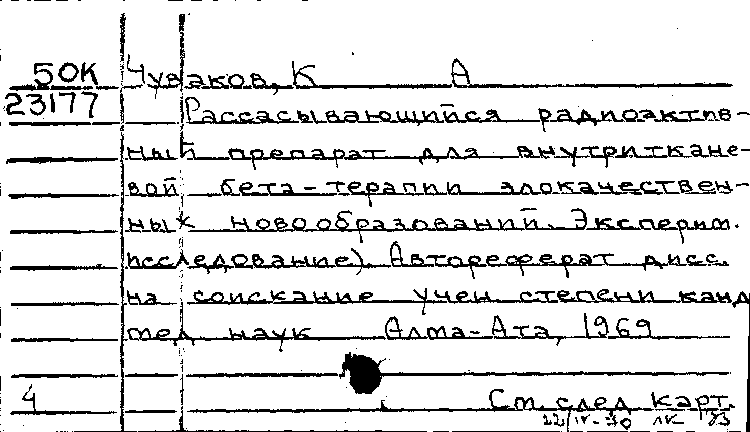 50К Чуваков, К А
23177 Рассасывающийся радиоактив-
ный препарат для внутриткане-
вой бета-терапии злокачествен-
ных новообразований. Эксперим.
исследование). Автореферат дисс.
на соискание учен степени канд
мед наук Алма-Ата, 1969
4 См. след карт.
22/IV-70